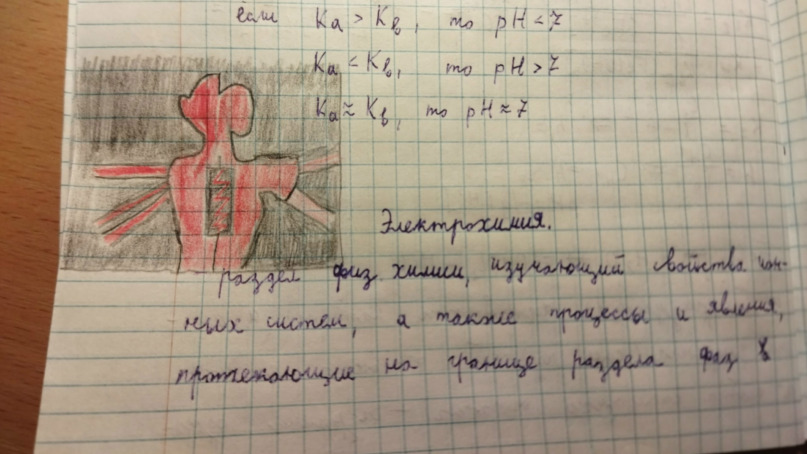 если Ka > Kb, то pH < 7
Ka < Kb, то pH > 7
Ka ≈ Kb, то pH ≈ 7
Электрохимия.
раздел физ химии, изучающий свойства ион-
ных систем, а также процессы и явления,
протекающие на границе раздела фаз в